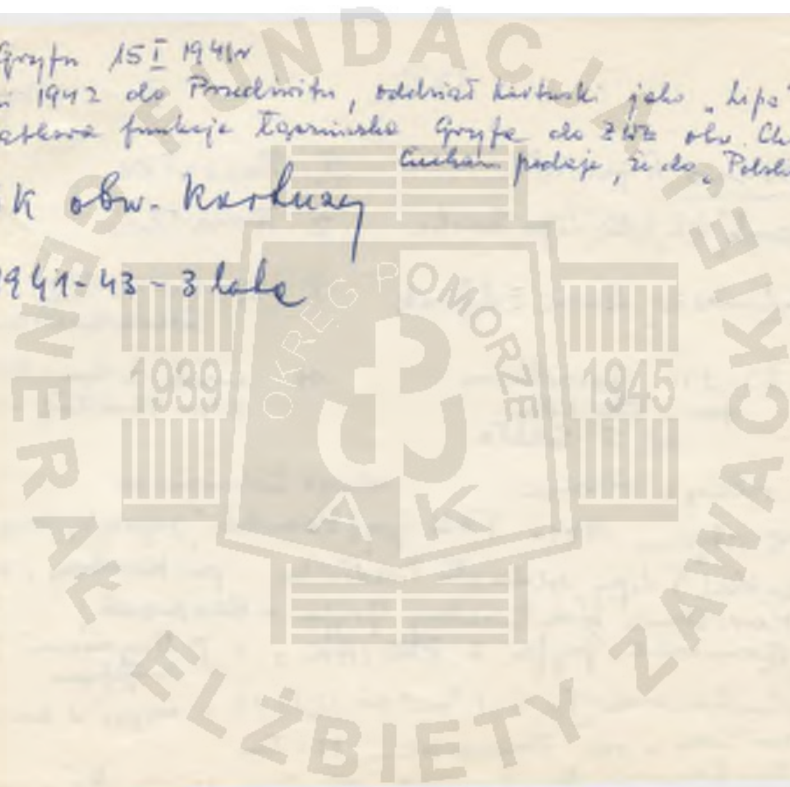 Gryfu 15 I 1941r
1942 do Przedświtu, oddział kartuski jako "Lipa"
funkcja łączniczka Gryfa do ZWZ obw. Ch
podaje, że do "Polski
K obw. Kartuzy
1941-43 - 3 lata
FUNDACJA GENERAŁ ELŻBIETY ZAWACKIEJ
OKRĘG POMORZE
1939 1945
AK